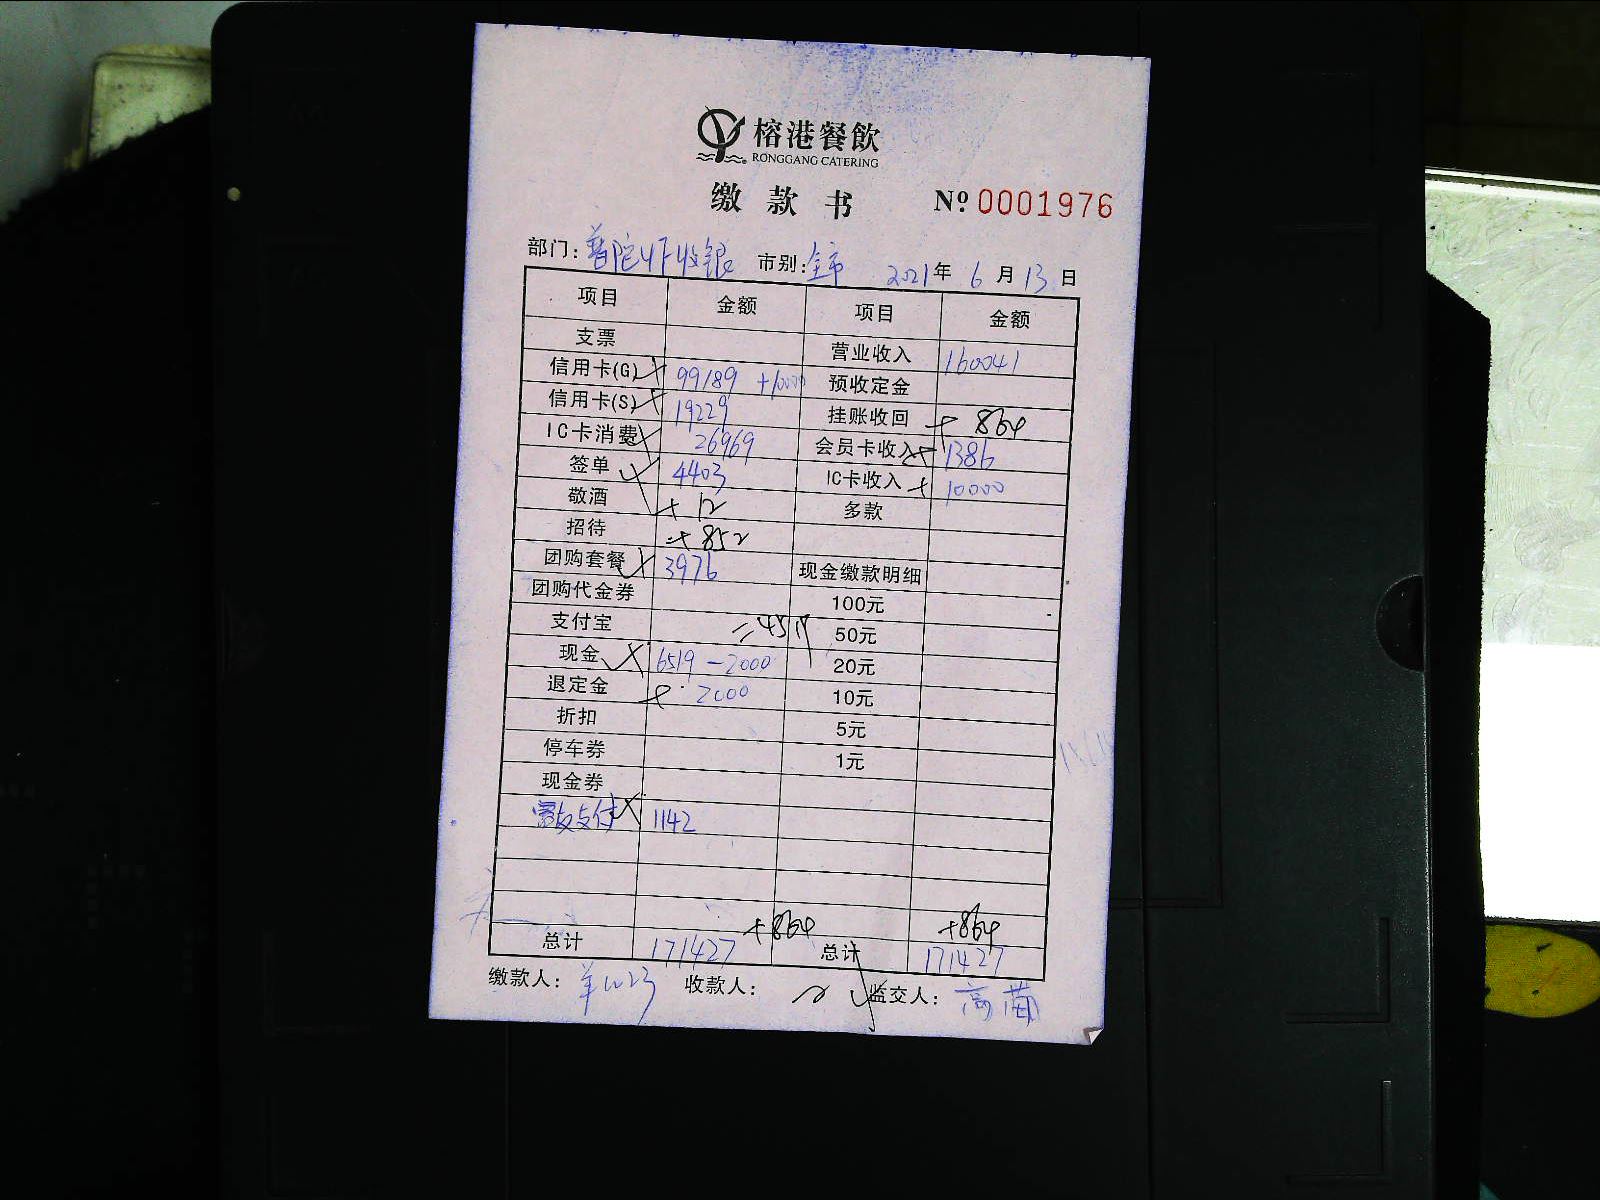 榕港餐飲
RONGGANG CATERING
缴款书 № 0001976
部门：普陀4F收银 市别：全市 2021年6月13日
项目 金额 项目 金额
支票 营业收入 160041
信用卡(G) 99189 +10000 预收定金
信用卡(S) 19229 挂账收回 + 864
IC卡消费 26969 会员卡收入 1386
签单 4403 IC卡收入 10000
敬酒 + 12 多款
招待 + 852
团购套餐 3976 现金缴款明细
团购代金券 100元
支付宝 50元
=4519
现金 6519 -2000 20元
退定金 2000 10元
折扣 5元
停车券 1元
现金券
支付 1142
+864 +864
总计 171427 总计 171427
缴款人： 收款人： 监交人：高苗